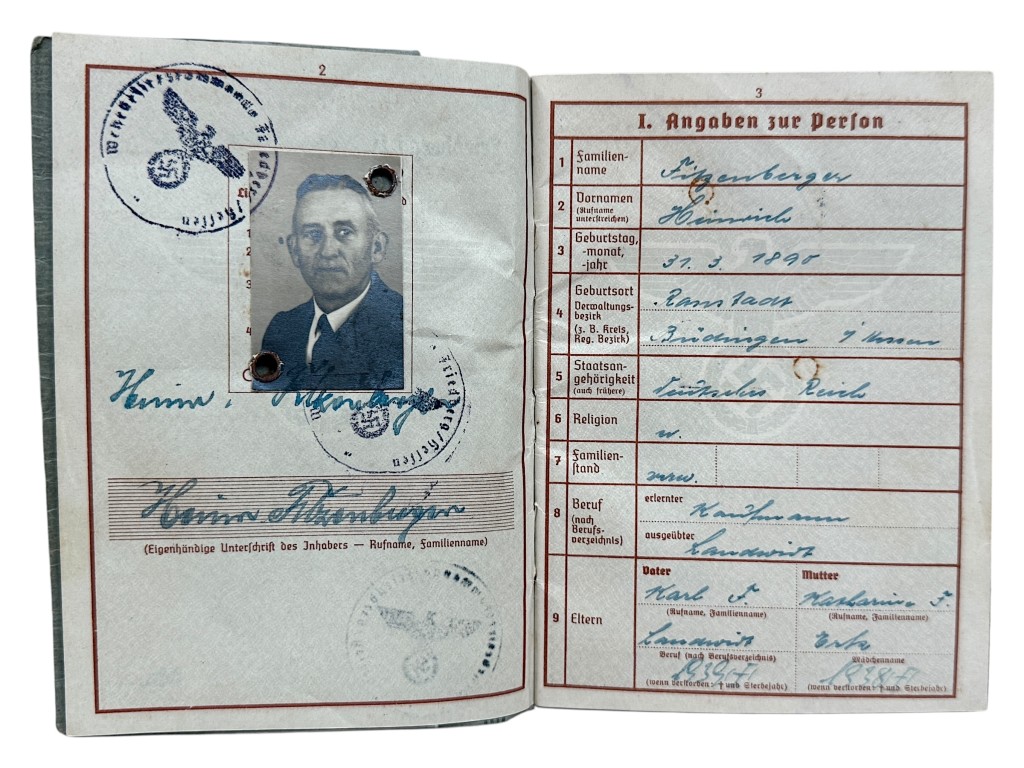 2
Wehrbezirkskommando Friedberg/Hessen
Heinr. Fitzenberger
Friedberg/Hessen
Heinr Fitzenberger
(Eigenhändige Unterschrift des Inhabers — Rufname, Familienname)
3
I. Angaben zur Person
1 Familien-
name
Fitzenberger
2 Vornamen
(Rufname
unterstreichen)
Heinrich
3 Geburtstag,
-monat,
-jahr
31. 3. 1890
4 Geburtsort
Verwaltungs-
bezirk
(z. B. Kreis,
Reg. Bezirk)
Ranstadt
Büdingen i/Hessen
5 Staatsan-
gehörigkeit
(auch frühere)
Deutsches Reich
6 Religion
7 Familien-
stand
verw.
8 Beruf
(nach
Berufs-
verzeichnis)
erlernter
Kaufmann
ausgeübter
Landwirt
9 Eltern
Vater
Karl F.
(Rufname, Familienname)
Landwirt
Beruf (nach Berufsverzeichnis)
(wenn verstorben: † und Sterbejahr)
Mutter
Katharina F.
(Rufname, Familienname)
Erk
Mädchenname
(wenn verstorben: † und Sterbejahr)